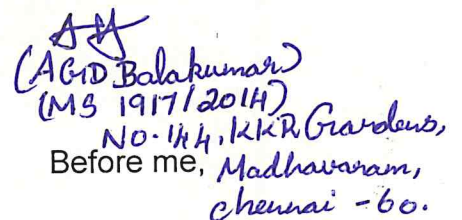 (AGD Balakumar)
(MS 1917/2014)
No. 144, KKR Gardens,
Before me, Madhavaram,
Chennai - 60.